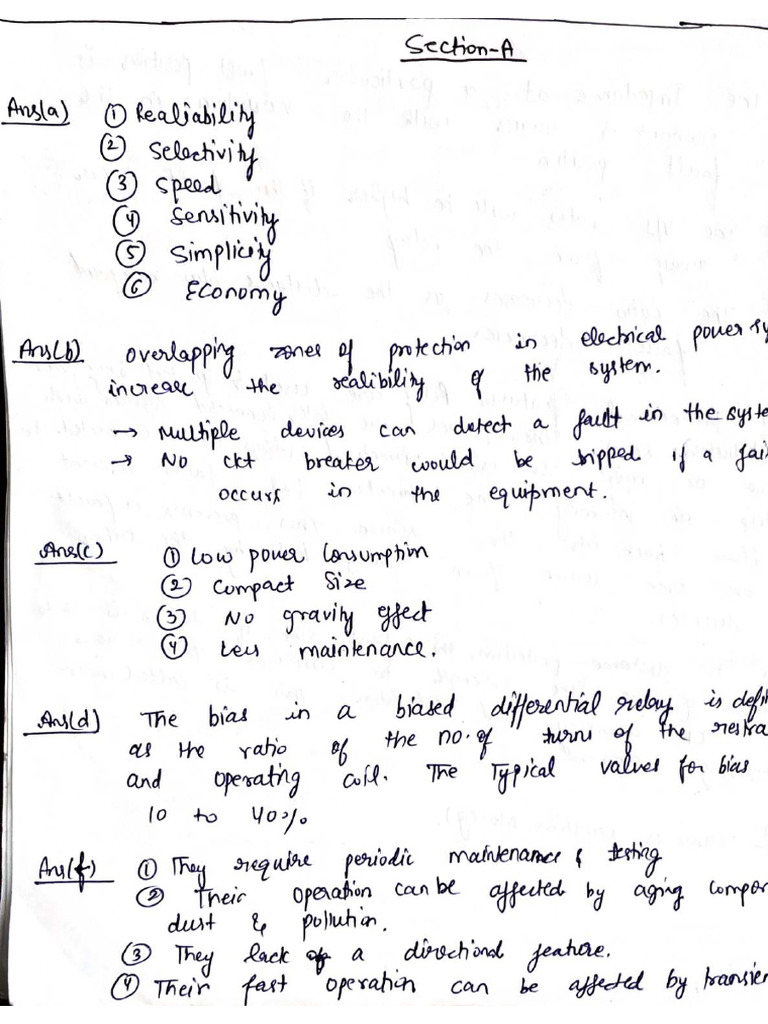 Section-A
Ans(a) ① Realiability
② Selectivity
③ Speed
④ Sensitivity
⑤ Simplicity
⑥ Economy
Ans(b) Overlapping zones of protection in electrical power sy
increase the realibility of the system.
→ Multiple devices can detect a fault in the syste
→ No ckt breaker would be tripped if a fai
occurs in the equipment.
Ans(c) ① Low power Consumption
② Compact Size
③ No gravity effect
④ Less maintenance.
Ans(d) The bias in a biased differential relay is defi
as the ratio of the no. of turns of the restra
and operating coil. The Typical values for bias
10 to 40%
Ans(f) ① They require periodic maintenance & testing
② Their operation can be affected by aging compo
dust & pollution.
③ They lack a directional feature.
④ Their fast operation can be affected by transien